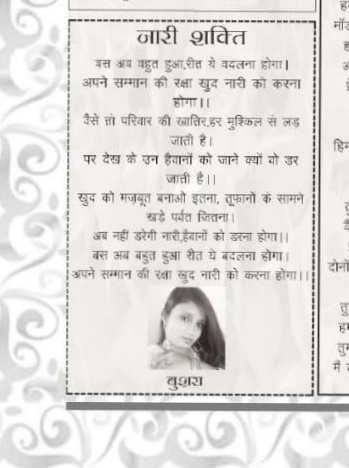 नारी शक्ति
बस अब बहुत हुआ,रीत ये बदलना होगा।
अपने सम्मान की रक्षा खुद नारी को करना
होगा।।
वैसे तो परिवार की खातिर,हर मुश्किल से लड़
जाती है।
पर देख के उन हैवानों को जाने क्यों वो डर
जाती है।।
खुद को मज़बूत बनाओ इतना, तूफानों के सामने
खड़े पर्वत जितना।
अब नहीं डरेगी नारी,हैवानों को डरना होगा।।
बस अब बहुत हुआ रीत ये बदलना होगा।
अपने सम्मान की रक्षा खुद नारी को करना होगा।।
बुशरा